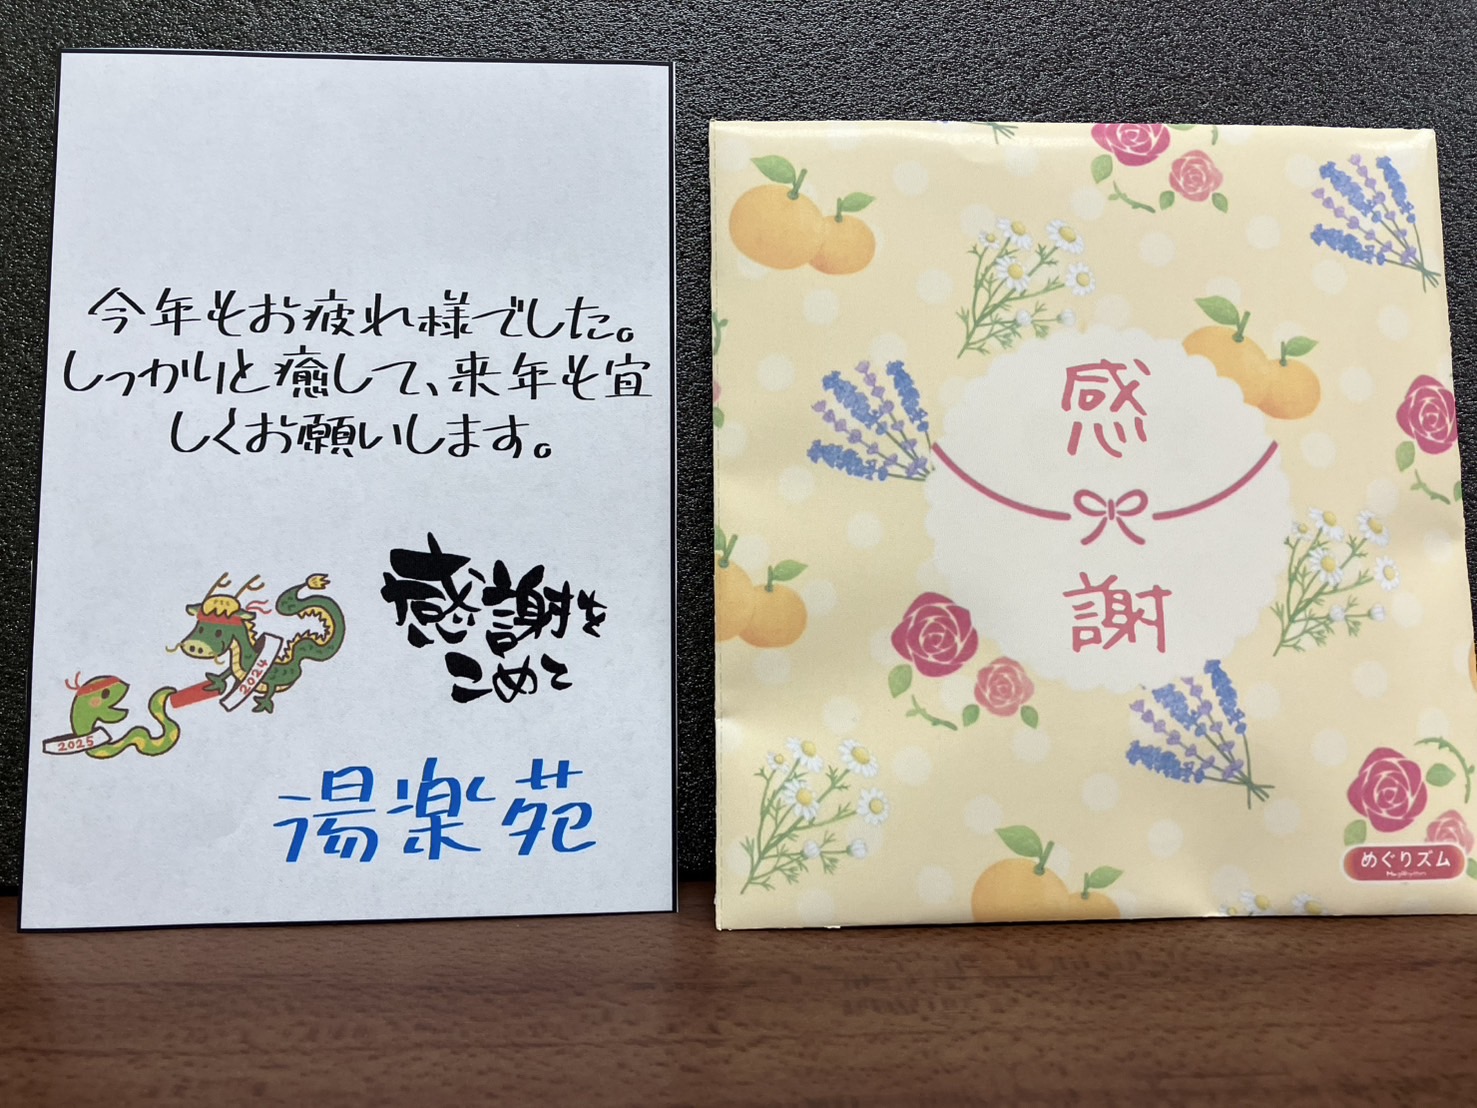 今年もお疲れ様でした。
しっかりと癒して、来年も宜
しくお願いします。
感謝を
こめて
2024
2025
湯楽苑
感
謝
めぐりズム
MegRhythm